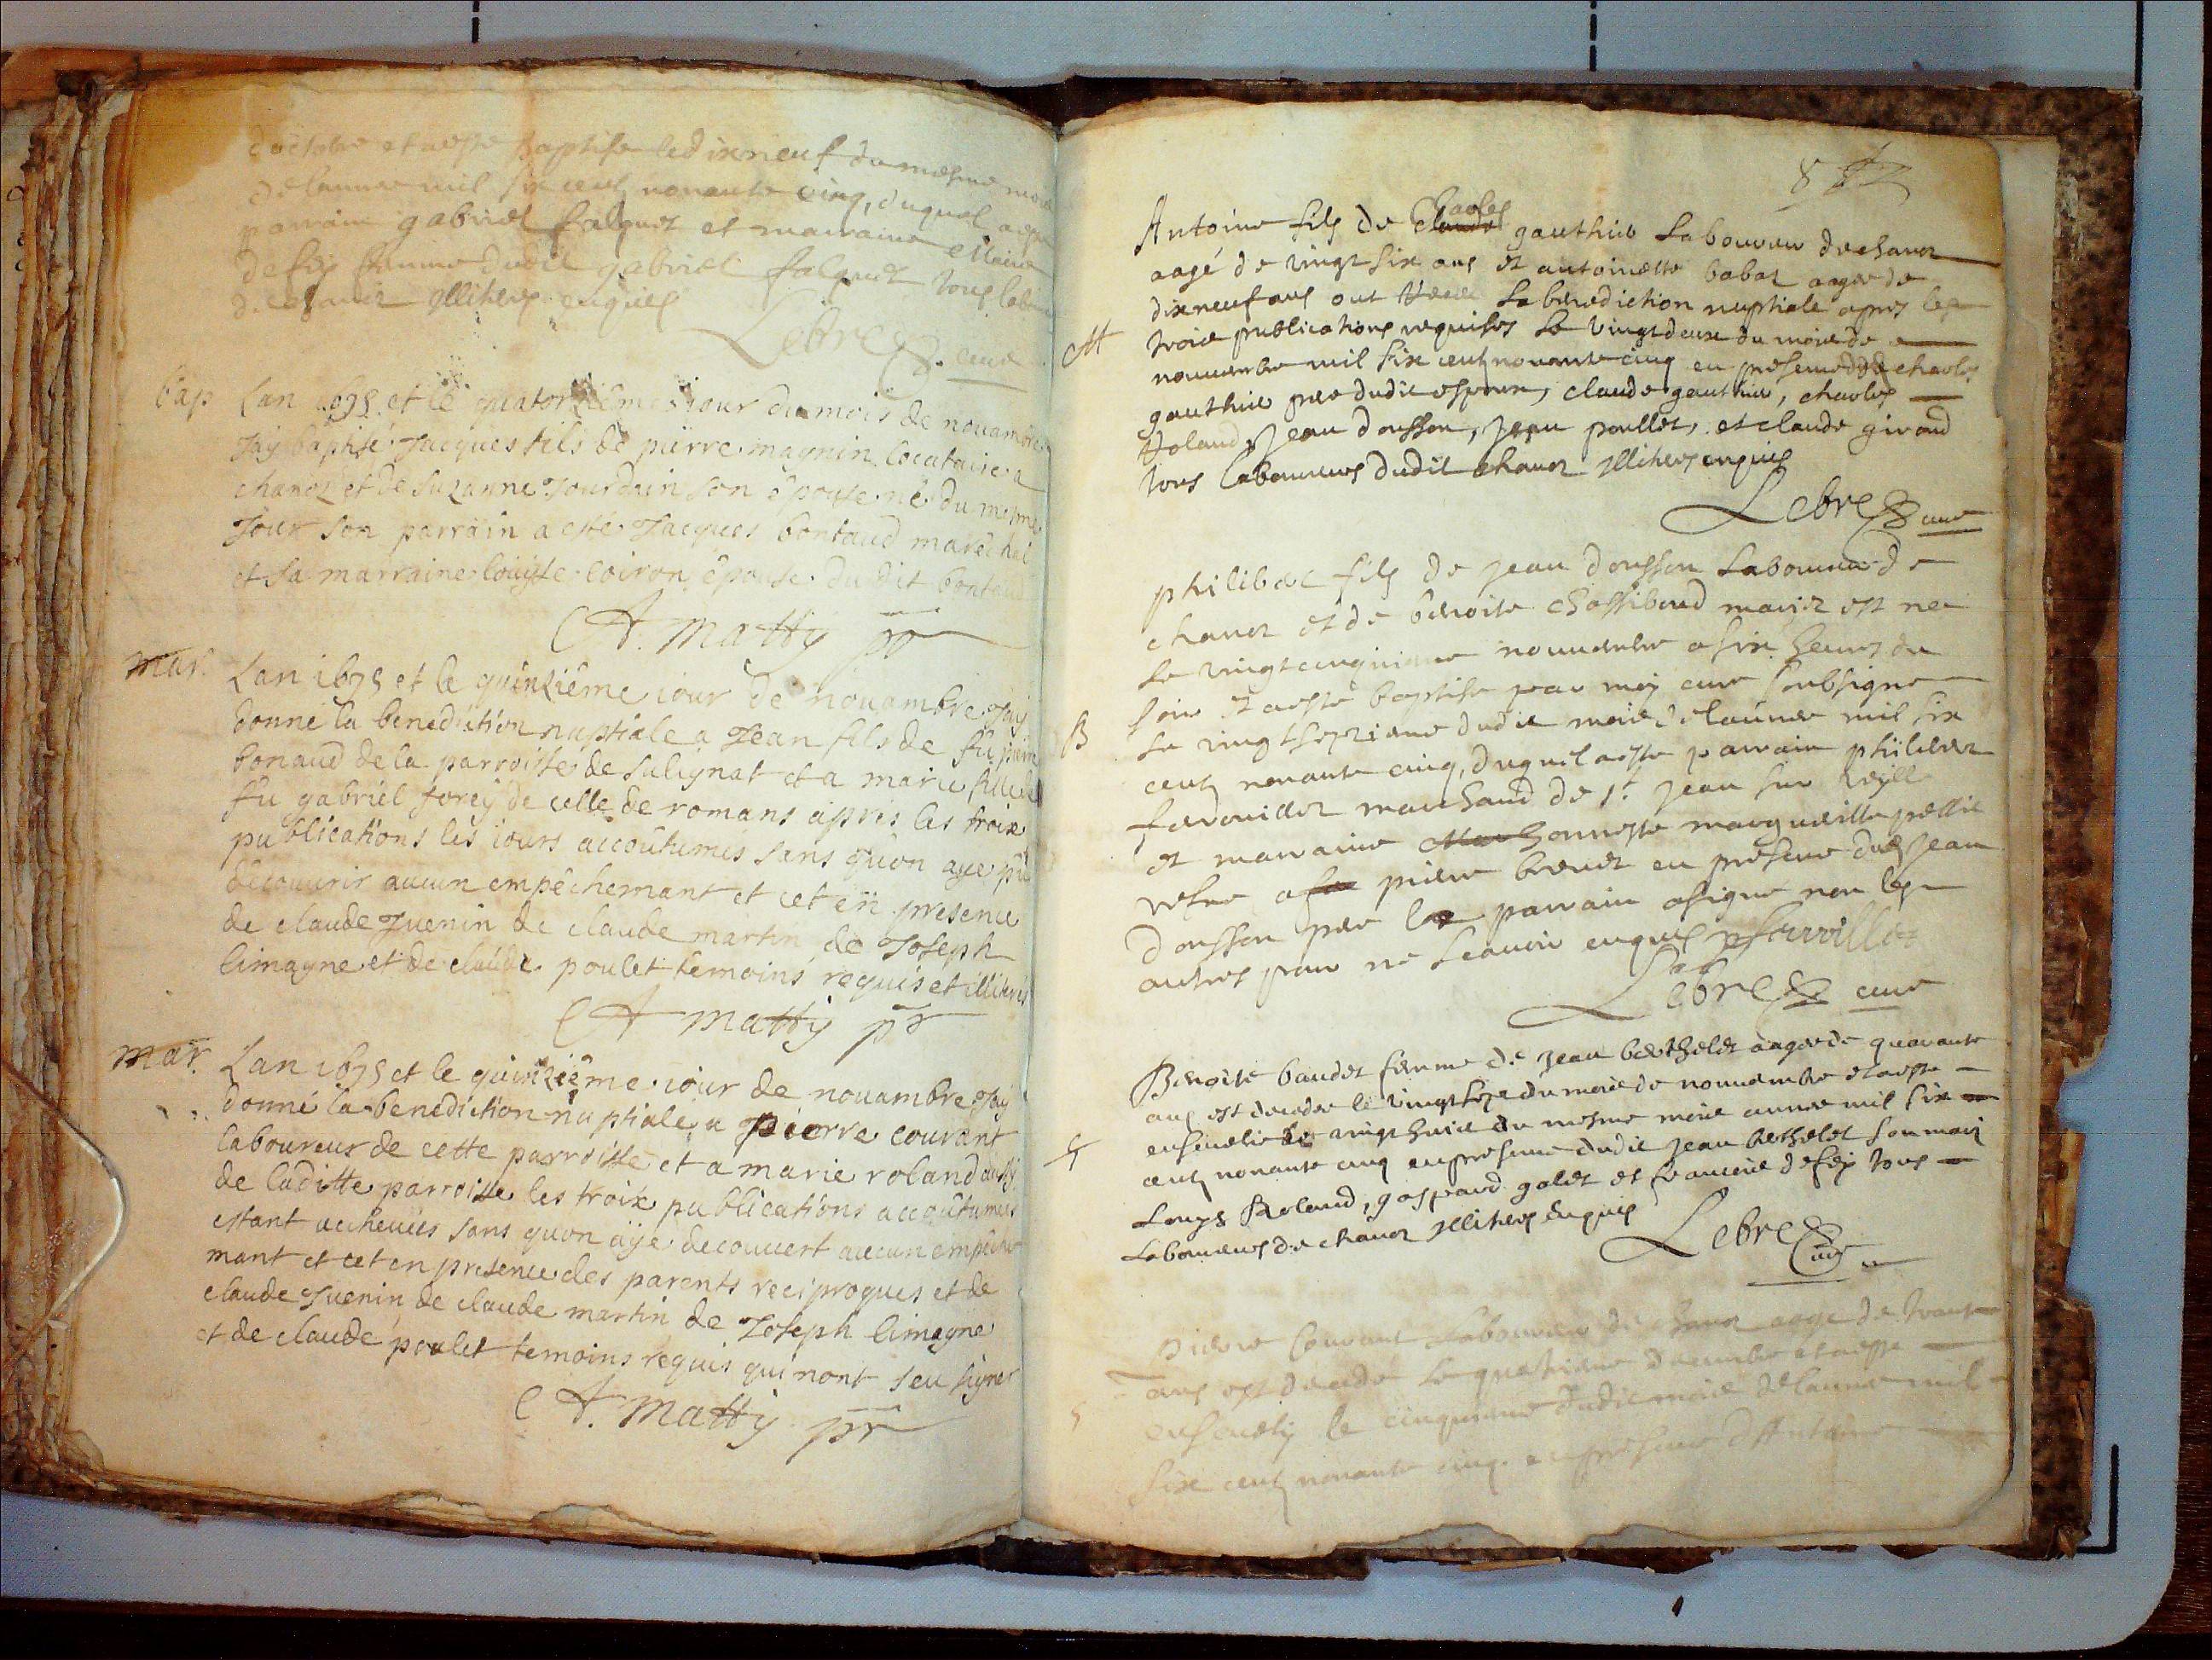 d'octobre et a esté baptisé le dixneuf du mesme mois
de lannee mil six cent nonante cinq, duquel a esté
parrain gabriel falquet et marraine
defey femme dudit gabriel falquet tous
de chanoz illiteres enquis
Lebrez cure
bap Lan 1695 et le quatorziême iour du mois de nouambre
Jay baptisé Jacques fils de pierre magnin locataire a
chanoz et de Suzanne Jourdain son épouse né du mesme
Jour son parrain a esté Jacques bontaud maréchal
et sa marraine louyse loiron épouse du dit bontaud
A. Matty ptr
mar. Lan 1695 et le quinziême iour de nouambre Jay
donné la benediction nuptiale a Jean fils de fu pierre
bonaud de la parroisse de sulignat et a marie fille de
fu gabriel forey de celle de romans aprés les troix
publications les iours accoûtumés sans quon aye pu
découurir aucun empêchemant et cet en presence
de claude Juenin de claude martin de Joseph
limagne et de claude poulet témoins requis et illiterés
A Matty ptr
mar. Lan 1695 et le quinziême iour de nouambre Jay
donné la benediction nuptiale a pierre courant
laboureur de cette parroisse et a marie roland aussy
de laditte parroisse les troix publications accoûtumées
estant acheuées sans quon aÿe decouuert aucun empêche
mant et cet en presence des parents reciproques et de
claude Juenin de claude martin de Joseph limagne
et de claude poulet temoins requis qui nont seu signer
A. Matty ptr
8
Antoine fils de claude Charles gauthier laboureur de chanoz
aagé de vingt six ans et antoinette babat aagee de
dixneuf ans ont receu la benediction nuptiale apres les
M trois publications requises le vingtdeux du mois de
nouuembre mil six cent nonante cinq en presence de charles
gauthier pere dudit espoux, claude gauthier, charles
Roland, Jean dousson, Jean poullet, et claude giraud
tous laboureurs dudit chanoz illiteres enquis
Lebrez cure
philibert fils de Jean dousson laboureur de
chanoz et de benoite chossiboud mariez est ne
le vingtcinquieme nouuembre a six heures du
soir et a esté baptisé par moy cure soubsigne
B le vingtseptieme dudit mois de lannee mil six
cent nonante cinq, duquel a esté parrain philibert
ferouillet marchand de st. Jean sur veylle
et marraine honneste marguerite
vefue a pierre brevet en presence dud Jean
dousson pere le parrain a signe non les
autres pour ne scauoir enquis pferrouillet
Lebrez cure
Benoite baudet femme de Jean berthelet aagee de quarante
ans est decedee le vingtsept du mois de nouuembre et a esté
enseuelie le vingthuit du mesme mois annee mil six
cent nonante cinq en presence dudit Jean berthelet son mary
Louys Roland, gaspard galet et francois defey tous
laboureurs de chanoz illiteres enquis
Lebrez cure
Pierre Courant laboureur de chanoz aage de trante
ans est decede le quatrieme decembre et a esté
enseuely le cinquieme dudit mois de lannee mil
six cent nonante cinq en presence d'Antoine